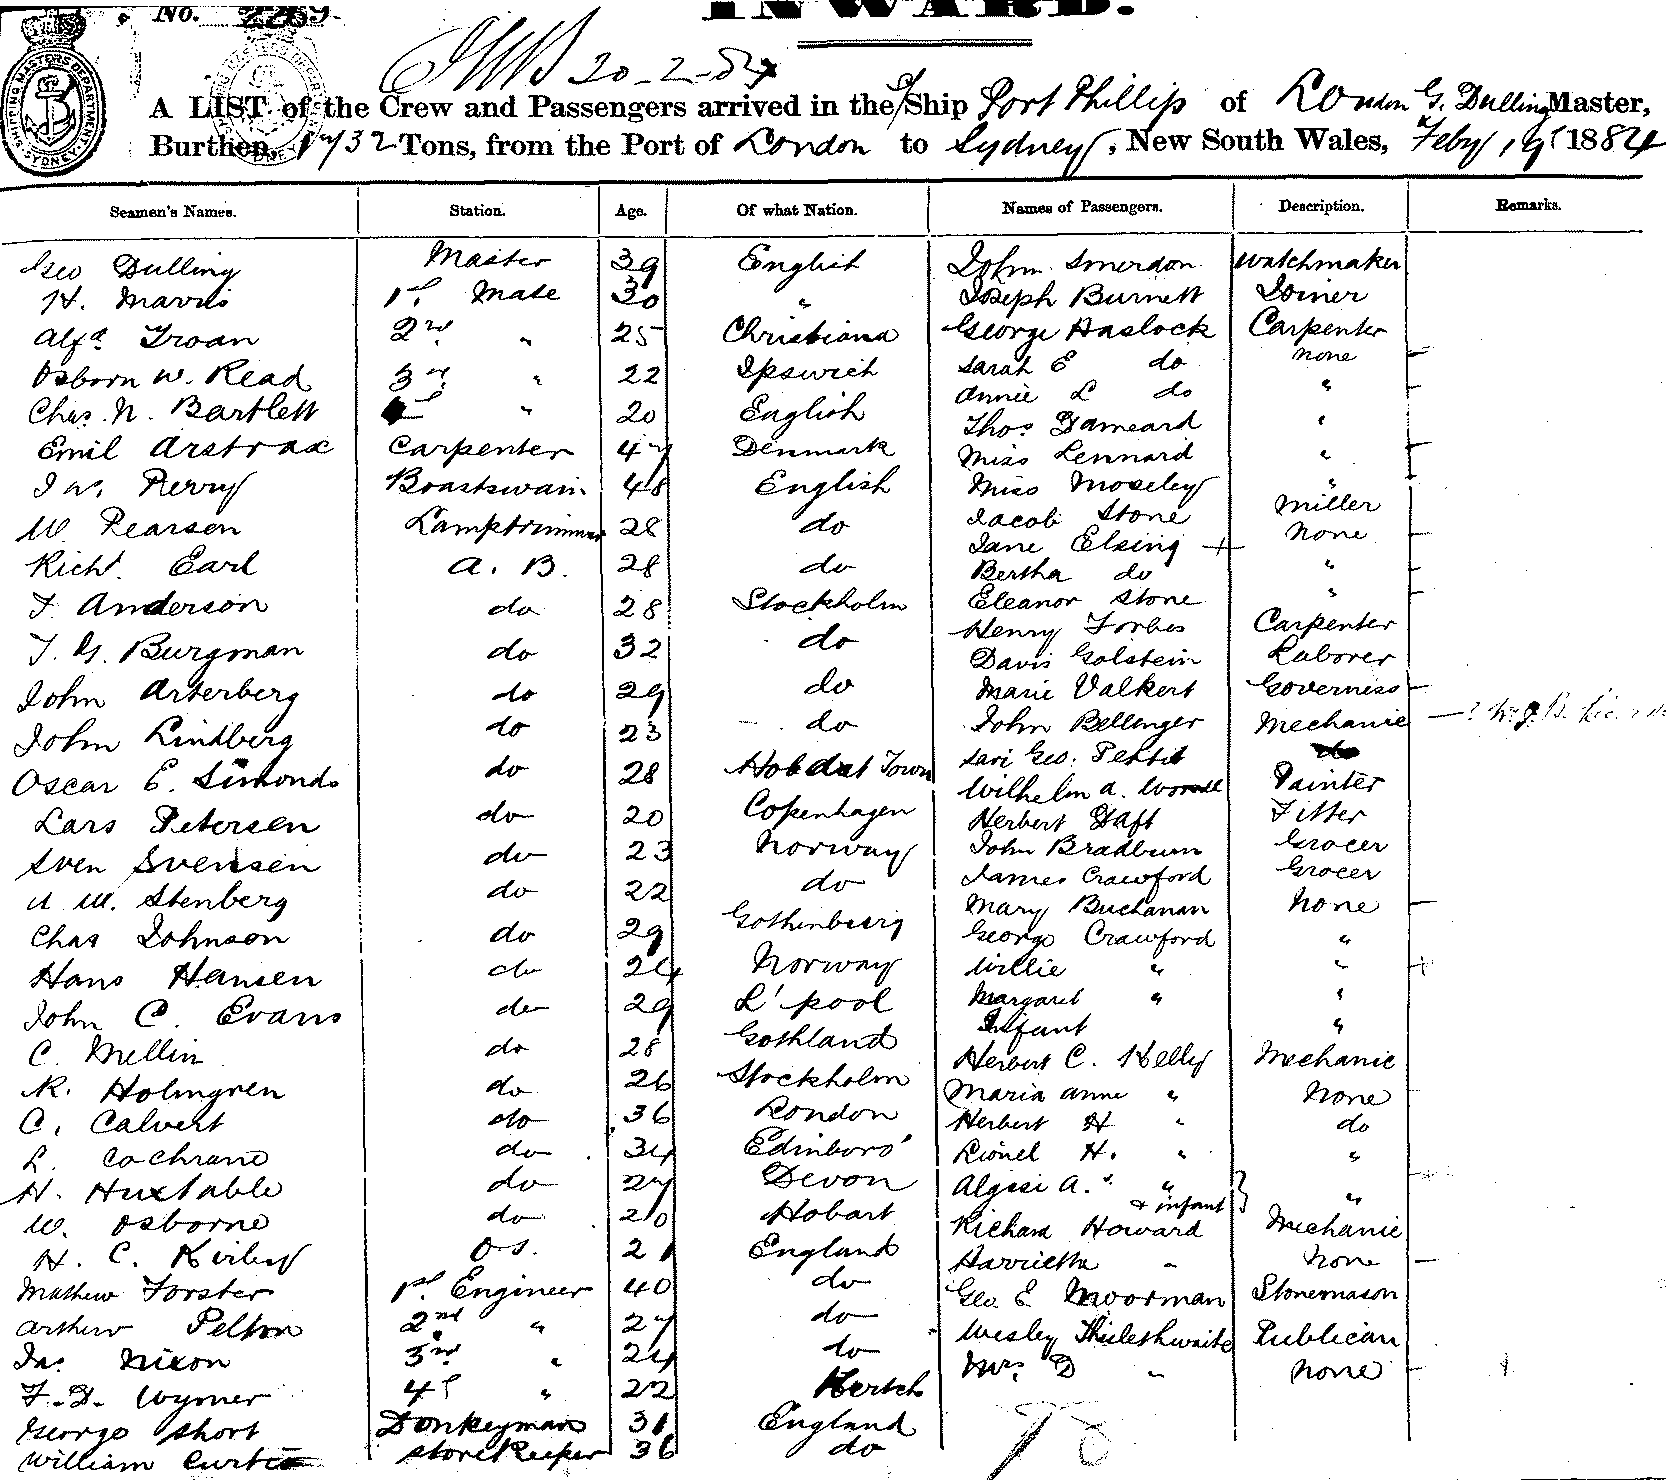 No. 2269.
INWARD.
20-2-84
A LIST of the Crew and Passengers arrived in the S/Ship Port Phillip of London G. Dulling Master,
Burthen, 1732 Tons, from the Port of London to Sydney, New South Wales, Feby 19 1884
Seamen's Names. Station. Age. Of what Nation. Names of Passengers. Description. Remarks.
Geo Dulling Master 39 English John Smerdon Watchmaker
H. Marris 1st Mate 30 " Joseph Burnett Joiner
Alfd Troan 2nd " 25 Christiana George Haslock Carpenter
Osborn W. Read 3rd " 22 Ipswich Sarah E do none
Chas. N. Bartlett " 20 English Annie L do "
Emil Arstrax Carpenter 47 Denmark Thos Dameard "
Jas. Perry Boastswain 48 English Miss Lennard "
W. Pearsen Lamptrimmer 28 do Miss Moseley "
Richd. Earl A. B. 28 do Jacob Stone Miller
F. Anderson do 28 Stockholm Jane Elsing None
T. G. Burgman do 32 do Bertha do "
John Arterberg do 29 do Eleanor Stone "
John Lindberg do 23 do Henry Forbes Carpenter
Oscar E. Simonds do 28 Hobart Town Davis Golstein Laborer
Lars Petersen do 20 Copenhagen Marie Valkert Governess
Sven Svensen do 23 Norway John Bellenger Mechanic
W. Stenberg do 22 do Geo. Pettit do
Chas Johnson do 29 Gothenburg Wilhelm A. Painter
Hans Hansen do 24 Norway Herbert Daft Fitter
John C. Evans do 29 L'pool John Bradburn Grocer
C. Mellin do 28 Gothland James Crawford Grocer
N. Holmgren do 26 Stockholm Mary Buchanan None
C. Calvert do 36 London George Crawford "
L. Cochrane do 34 Edinboro' Willie " "
H. Huxtable do 27 Devon Margaret " "
W. Osborne do 20 Hobart Infant "
H. C. Kirby O.S. 21 England Herbert C. Kelly Mechanic
Mathew Forster 1st Engineer 40 do Maria Anne " None
Arthur Pelton 2nd " 27 do Herbert H " do
Jas. Nixon 3rd " 24 do Lionel H. " "
F. D. Wymer 4th " 22 Hertch A. " & infant "
George Short Donkeyman 31 England Richard Howard Mechanic
William Curtis Storekeeper 36 do Harrietta " None
Geo E Moorman Stonemason
Wesley Publican
Mrs. D " None